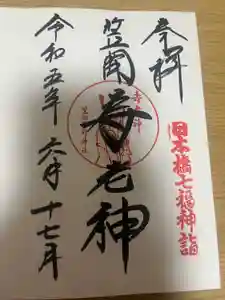 奉拝
日本橋七福神詣
笠間寿老神
令和五年六月十七日